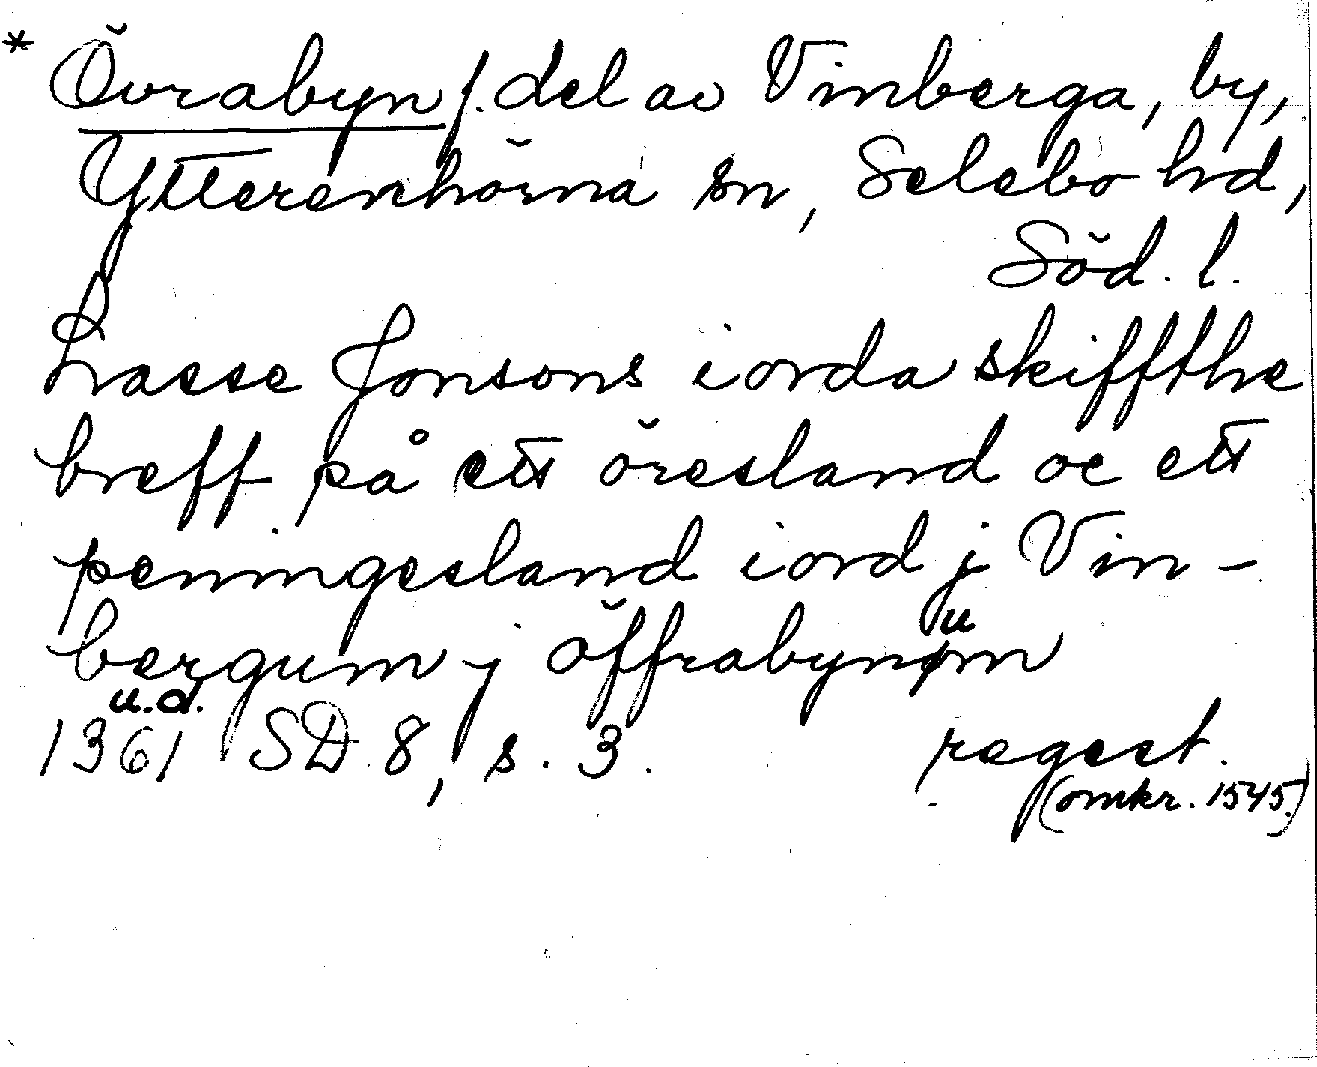 * Övrabyn f. del av Vinberga, by,
Ytterenhörna sn, Selebo hd,
Söd. l.
Lasse Jonsons iorda skiffthe
breff på ett öresland oc ett
peningesland iord j Vin-
bergum j öffrabynum
u.d.
1361 SD 8, s. 3. regest.
(omkr. 1545.)